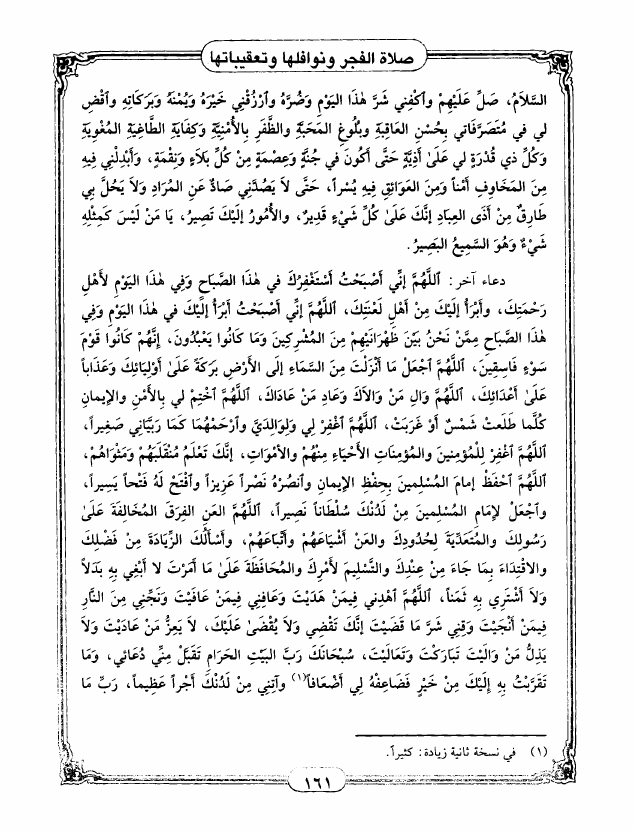 صلاة الفجر ونوافلها وتعقيباتها
السَّلاَمُ، صَلِّ عَلَيْهِمْ وٱكْفِني شَرَّ هٰذا اليَوْمِ وَضُرَّهُ وٱرْزُقْني خَيْرَهُ وَيُمْنَهُ وَبَرَكَاتِهِ وٱقْضِ
لي في مُتَصَرَّفاتي بِحُسْنِ العَاقِبَةِ وبُلُوغِ المَحَبَّةِ والظَّفَرِ بِالأُمْنِيَّةِ وَكِفايَةِ الطَّاغِيَةِ المُغْوِيَةِ
وَكُلِّ ذي قُدْرَةٍ لي عَلَىٰ أَذِيَّةٍ حَتَّى أَكُونَ في جُنَّةٍ وَعِصْمَةٍ مِنْ كُلِّ بَلاَءٍ وَنِقْمَةٍ، وَأَبْدِلْني فِيهِ
مِنَ المَخَاوِفِ أَمْناً وَمِنَ العَوَائِقِ فِيهِ يُسْراً، حَتَّى لاَ يَصُدَّني صَادٌّ عَنِ المُرَادِ وَلاَ يَحُلَّ بِي
طَارِقٌ مِنْ أَذَى العِبَادِ إنَّكَ عَلَىٰ كُلِّ شَيْءٍ قَدِيرٌ، والأُمُورُ إلَيْكَ تَصِيرُ، يَا مَنْ لَيْسَ كَمِثْلِهِ
شَيْءٌ وَهُوَ السَّمِيعُ البَصِيرُ.
دعاء آخر: ٱللَّهُمَّ إنِّي أَصْبَحْتُ أَسْتَغْفِرُكَ في هٰذا الصَّبَاحِ وَفي هٰذا اليَوْمِ لأَهْلِ
رَحْمَتِكَ، وَأَبْرَأُ إلَيْكَ مِنْ أَهْلِ لَعْنَتِكَ، ٱللَّهُمَّ إنِّي أَصْبَحْتُ أَبْرَأُ إلَيْكَ في هٰذا اليَوْمِ وَفي
هٰذا الصَّبَاحِ مِمَّنْ نَحْنُ بَيْنَ ظَهْرَانَيْهِمْ مِنَ المُشْرِكِينَ وَمَا كَانُوا يَعْبُدُونَ، إنَّهُمْ كَانُوا قَوْمَ
سَوْءٍ فَاسِقِينَ، ٱللَّهُمَّ ٱجْعَلْ مَا أَنْزَلْتَ مِنَ السَّمَاءِ إلَى الأَرْضِ بَرَكَةً عَلَىٰ أَوْلِيَائِكَ وَعَذَاباً
عَلَىٰ أَعْدَائِكَ، ٱللَّهُمَّ وَالِ مَنْ وَالاَكَ وَعَادِ مَنْ عَادَاكَ، ٱللَّهُمَّ ٱخْتِمْ لي بِالأَمْنِ والإيمانِ
كُلَّما طَلَعَتْ شَمْسٌ أَوْ غَرَبَتْ، ٱللَّهُمَّ ٱغْفِرْ لي وَلِوَالِدَيَّ وٱرْحَمْهُمَا كَمَا رَبَّيَاني صَغِيراً،
ٱللَّهُمَّ ٱغْفِرْ لِلْمُؤمِنينَ والمُؤمِنَاتِ الأَحْيَاءِ مِنْهُمْ والأَمْوَاتِ، إنَّكَ تَعْلَمُ مُنْقَلَبَهُمْ وَمَثْوَاهُمْ،
ٱللَّهُمَّ ٱحْفَظْ إمامَ المُسْلِمينَ بِحِفْظِ الإيمانِ وٱنصُرْهُ نَصْراً عَزِيزاً وٱفْتَحْ لَهُ فَتْحاً يَسِيراً،
وٱجْعَلْ لإمامِ المُسْلِمينَ مِنْ لَدُنْكَ سُلْطَاناً نَصِيراً، ٱللَّهُمَّ العَنِ الفِرَقَ المُخَالِفَةَ عَلَىٰ
رَسُولِكَ والمُتَعَدِّيَةَ لِحُدُودِكَ والعَنْ أَشْيَاعَهُمْ وأَتْبَاعَهُمْ، وأَسْأَلُكَ الزِّيَادَةَ مِنْ فَضْلِكَ
والاقْتِدَاءَ بِمَا جَاءَ مِنْ عِنْدِكَ والتَّسْلِيمَ لأَمْرِكَ والمُحَافَظَةَ عَلَىٰ مَا أَمَرْتَ لا أَبْغِي بِهِ بَدَلاً
وَلاَ أَشْتَرِي بِهِ ثَمَناً، ٱللَّهُمَّ ٱهْدِني فِيمَنْ هَدَيْتَ وَعَافِني فِيمَنْ عَافَيْتَ وَنَجِّني مِنَ النَّارِ
فِيمَنْ أَنْجَيْتَ وَقِني شَرَّ مَا قَضَيْتَ إنَّكَ تَقْضِي وَلاَ يُقْضَىٰ عَلَيْكَ، لا يَعِزُّ مَنْ عَادَيْتَ وَلاَ
يَذِلُّ مَنْ وَالَيْتَ تَبَارَكْتَ وَتَعَالَيْتَ، سُبْحَانَكَ رَبَّ البَيْتِ الحَرَامِ تَقَبَّلْ مِنِّي دُعَائي، وَمَا
تَقَرَّبْتُ بِهِ إلَيْكَ مِنْ خَيْرٍ فَضَاعِفْهُ لي أَضْعَافاً(١) وآتِني مِنْ لَدُنْكَ أَجْراً عَظِيماً، رَبِّ مَا
(١) في نسخة ثانية زيادة: كثيراً.
١٦١